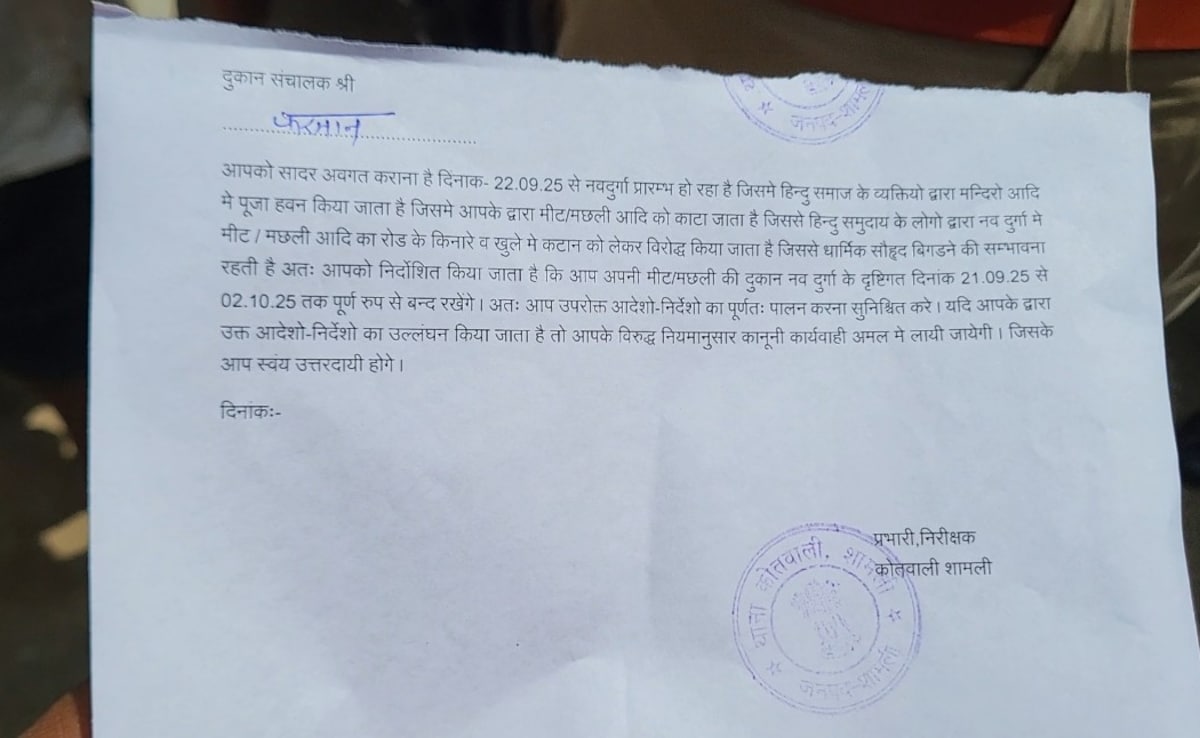 दुकान संचालक श्री
फरमान
जनपद-शामली
आपको सादर अवगत कराना है दिनांक- 22.09.25 से नवदुर्गा प्रारम्भ हो रहा है जिसमे हिन्दु समाज के व्यक्तियो द्वारा मन्दिरो आदि
मे पूजा हवन किया जाता है जिसमे आपके द्वारा मीट/मछली आदि को काटा जाता है जिससे हिन्दु समुदाय के लोगो द्वारा नव दुर्गा मे
मीट / मछली आदि का रोड के किनारे व खुले मे कटान को लेकर विरोद्ध किया जाता है जिससे धार्मिक सौहृद बिगडने की सम्भावना
रहती है अतः आपको निर्दोशित किया जाता है कि आप अपनी मीट/मछली की दुकान नव दुर्गा के दृष्टिगत दिनांक 21.09.25 से
02.10.25 तक पूर्ण रुप से बन्द रखेंगे। अतः आप उपरोक्त आदेशो-निर्देशो का पूर्णतः पालन करना सुनिश्चित करे। यदि आपके द्वारा
उक्त आदेशो-निर्देशो का उल्लंघन किया जाता है तो आपके विरुद्ध नियमानुसार कानूनी कार्यवाही अमल मे लायी जायेगी। जिसके
आप स्वंय उत्तरदायी होगे।
दिनांकः-
प्रभारी,निरीक्षक
कोतवाली शामली
थाना कोतवाली, शामली
जनपद-शामली